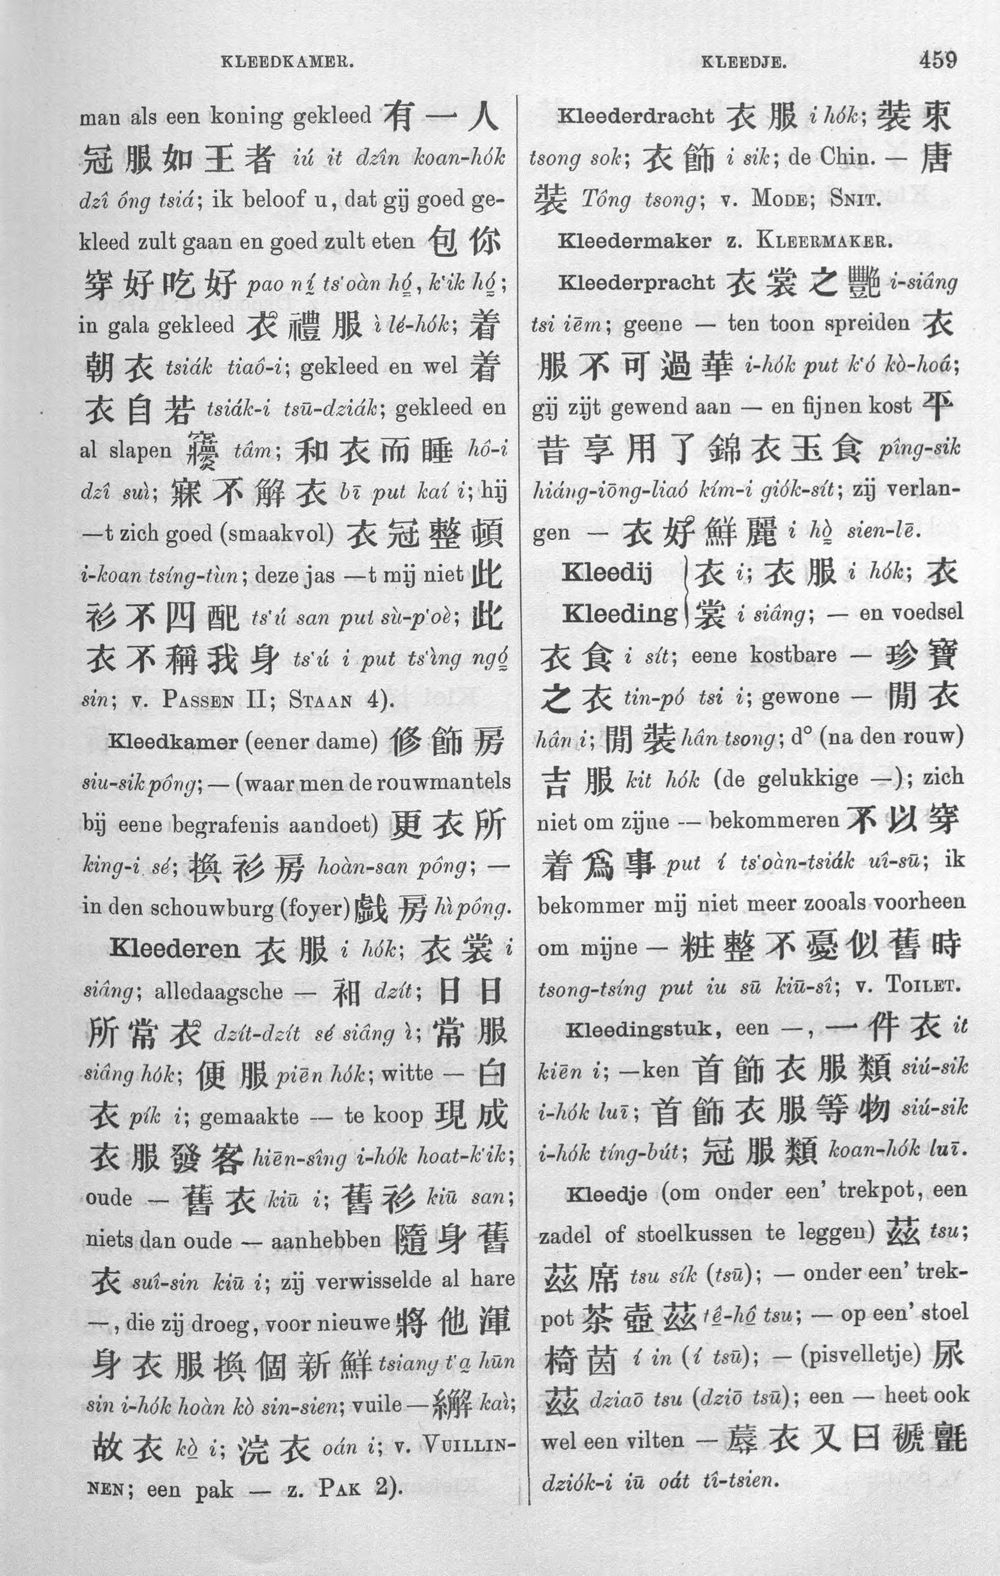 KLEEDKAMER. KLEEDJE. 459
man als een koning gekleed 有一人
冠服如王者 iú it dzîn koan-hók
dzî ông tsiá; ik beloof u, dat gij goed ge-
kleed zult gaan en goed zult eten 包你
穿好吃好 pao ní ts'oàn hó, k'ik hó;
in gala gekleed 衣禮服 ì lé-hók; 着
朝衣 tsiák tiaô-i; gekleed en wel 着
衣自若 tsiák-i tsū-dziák; gekleed en
al slapen tâm; 和衣而睡 hô-i
dzî suì; 寐不解衣 bī put kaí i; hij
—t zich goed (smaakvol) 衣冠整頓
i-koan tsíng-tùn; deze jas —t mij niet 此
衫不四配 ts'ú san put sù-p'oè; 此
衣不稱我身 ts'ú i put ts'ìng ngó
sin; v. PASSEN II; STAAN 4).
Kleedkamer (eener dame) 修飾房
siu-sik pông; — (waar men de rouwmantels
bij eene begrafenis aandoet) 更衣所
king-i sé; 換衫房 hoàn-san pông; —
in den schouwburg (foyer) 戲房 hì pông.
Kleederen 衣服 i hók; 衣裳 i
siâng; alledaagsche — 衵 dzít; 日日
所常衣 dzít-dzít sé siâng ì; 常服
siâng hók; 便服 piēn hók; witte — 白
衣 pík i; gemaakte — te koop 現成
衣服發客 hiēn-sîng i-hók hoat-k'ik;
oude — 舊衣 kiū i; 舊衫 kiū san;
niets dan oude — aanhebben 隨身舊
衣 suî-sin kiū i; zij verwisselde al hare
—, die zij droeg, voor nieuwe 將他渾
身衣服換個新鮮 tsiang t'a hūn
sin i-hók hoàn kò sin-sien; vuile — kaì;
故衣 kò i; 浣衣 oán i; v. VUILLIN-
NEN; een pak — z. PAK 2).
Kleederdracht 衣服 i hók; 裝束
tsong sok; 衣飾 i sik; de Chin. — 唐
裝 Tông tsong; v. MODE; SNIT.
Kleedermaker z. KLEERMAKER.
Kleederpracht 衣裳之艷 i-siâng
tsi iēm; geene — ten toon spreiden 衣
服不可過華 i-hók put k'ó kò-hoâ;
gij zijt gewend aan — en fijnen kost 平
昔享用了錦衣玉食 pîng-sik
hiáng-iōng-liaó kím-i giók-sít; zij verlan-
gen — 衣好鮮麗 i hò sien-lē.
Kleedij 衣 i; 衣服 i hók; 衣
Kleeding 裳 i siâng; — en voedsel
衣食 i sít; eene kostbare — 珍寶
之衣 tin-pó tsi i; gewone — 閒衣
hân i; 閒裝 hân tsong; d° (na den rouw)
吉服 kit hók (de gelukkige —); zich
niet om zijne — bekommeren 不以穿
着爲事 put í ts'oàn-tsiák uî-sū; ik
bekommer mij niet meer zooals voorheen
om mijne — 粧整不憂似舊時
tsong-tsíng put iu sū kiū-sî; v. TOILET.
Kleedingstuk, een —, 一件衣 it
kiēn i; —ken 首飾衣服類 siú-sik
i-hók luī; 首飾衣服等物 siú-sik
i-hók tíng-bút; 冠服類 koan-hók luī.
Kleedje (om onder een' trekpot, een
zadel of stoelkussen te leggen) 茲 tsu;
茲席 tsu sík (tsū); — onder een' trek-
pot 茶壺茲 tê-hô tsu; — op een' stoel
椅茵 í in (í tsū); — (pisvelletje) 尿
茲 dziaō tsu (dziō tsū); een — heet ook
wel een vilten — 蓐衣又曰褫氈
dziók-i iū oát tî-tsien.